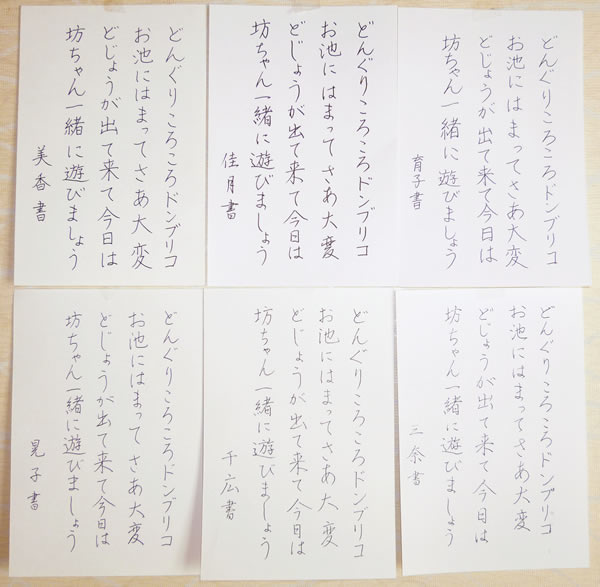 どんぐりころころドンブリコ
お池にはまってさあ大変
どじょうが出て来て今日は
坊ちゃん一緒に遊びましょう
育子書
どんぐりころころドンブリコ
お池にはまってさあ大変
どじょうが出て来て今日は
坊ちゃん一緒に遊びましょう
佳月書
どんぐりころころドンブリコ
お池にはまってさあ大変
どじょうが出て来て今日は
坊ちゃん一緒に遊びましょう
美香書
どんぐりころころドンブリコ
お池にはまってさあ大変
どじょうが出て来て今日は
坊ちゃん一緒に遊びましょう
三奈書
どんぐりころころドンブリコ
お池にはまってさあ大変
どじょうが出て来て今日は
坊ちゃん一緒に遊びましょう
千広書
どんぐりころころドンブリコ
お池にはまってさあ大変
どじょうが出て来て今日は
坊ちゃん一緒に遊びましょう
晃子書